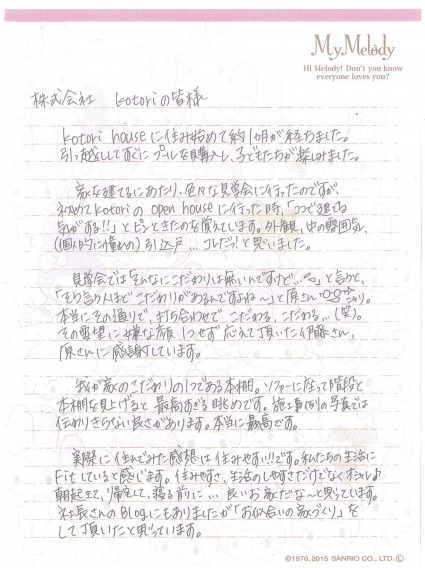 My Melody
Hi Melody! Don't you know
everyone loves you?
株式会社 kotoriの皆様
kotori houseに住み始めて約1ヶ月が経ちました。
引っ越ししてすぐにプールを購入し、子どもたちが楽しみました。
家を建てるにあたり、色々な見学会に行ったのですが、
初めてkotoriのopen houseに行った時、「ココで建てる
気がする!!」とピンときたのを覚えています。外観、中の雰囲気、
(個人的に憧れの)引込戸…コレだっ!と思いました。
見学会では「そんなにこだわりは無いんですけど…」と言うと、
「そう言う人ほどこだわりがあるんですよね〜」と原さん
本当にその通りで、打ち合わせでこだわる、こだわる…(笑)。
その要望に嫌な顔1つせず応えて頂いた伊藤さん、
原さんに感謝しています。
我が家のこだわりの1つである本棚。ソファーに座って階段と
本棚を見上げると最高すぎる眺めです。施工事例の写真では
伝わりきらない良さがあります。本当に最高です。
実際に住んでみた感想は住みやすい!!です。私たちの生活に
Fitしていると感じます。住みやすさ、生活のしやすさだけでなくオシャレ♪
朝起きて、帰宅して、寝る前に…良いお家だな〜と思っています。
社長さんのBlogにもありましたが「お似合いの家づくり」を
して頂いたと思っています。
©1976, 2015 SANRIO CO., LTD. Ⓛ